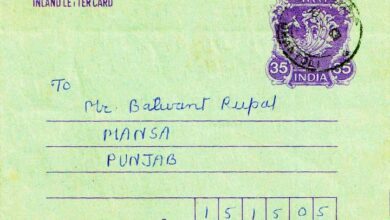 INLAND LETTER CARD
35 INDIA 35
To
Mr. Balwant Rupal
MANSA
PUNJAB
151505